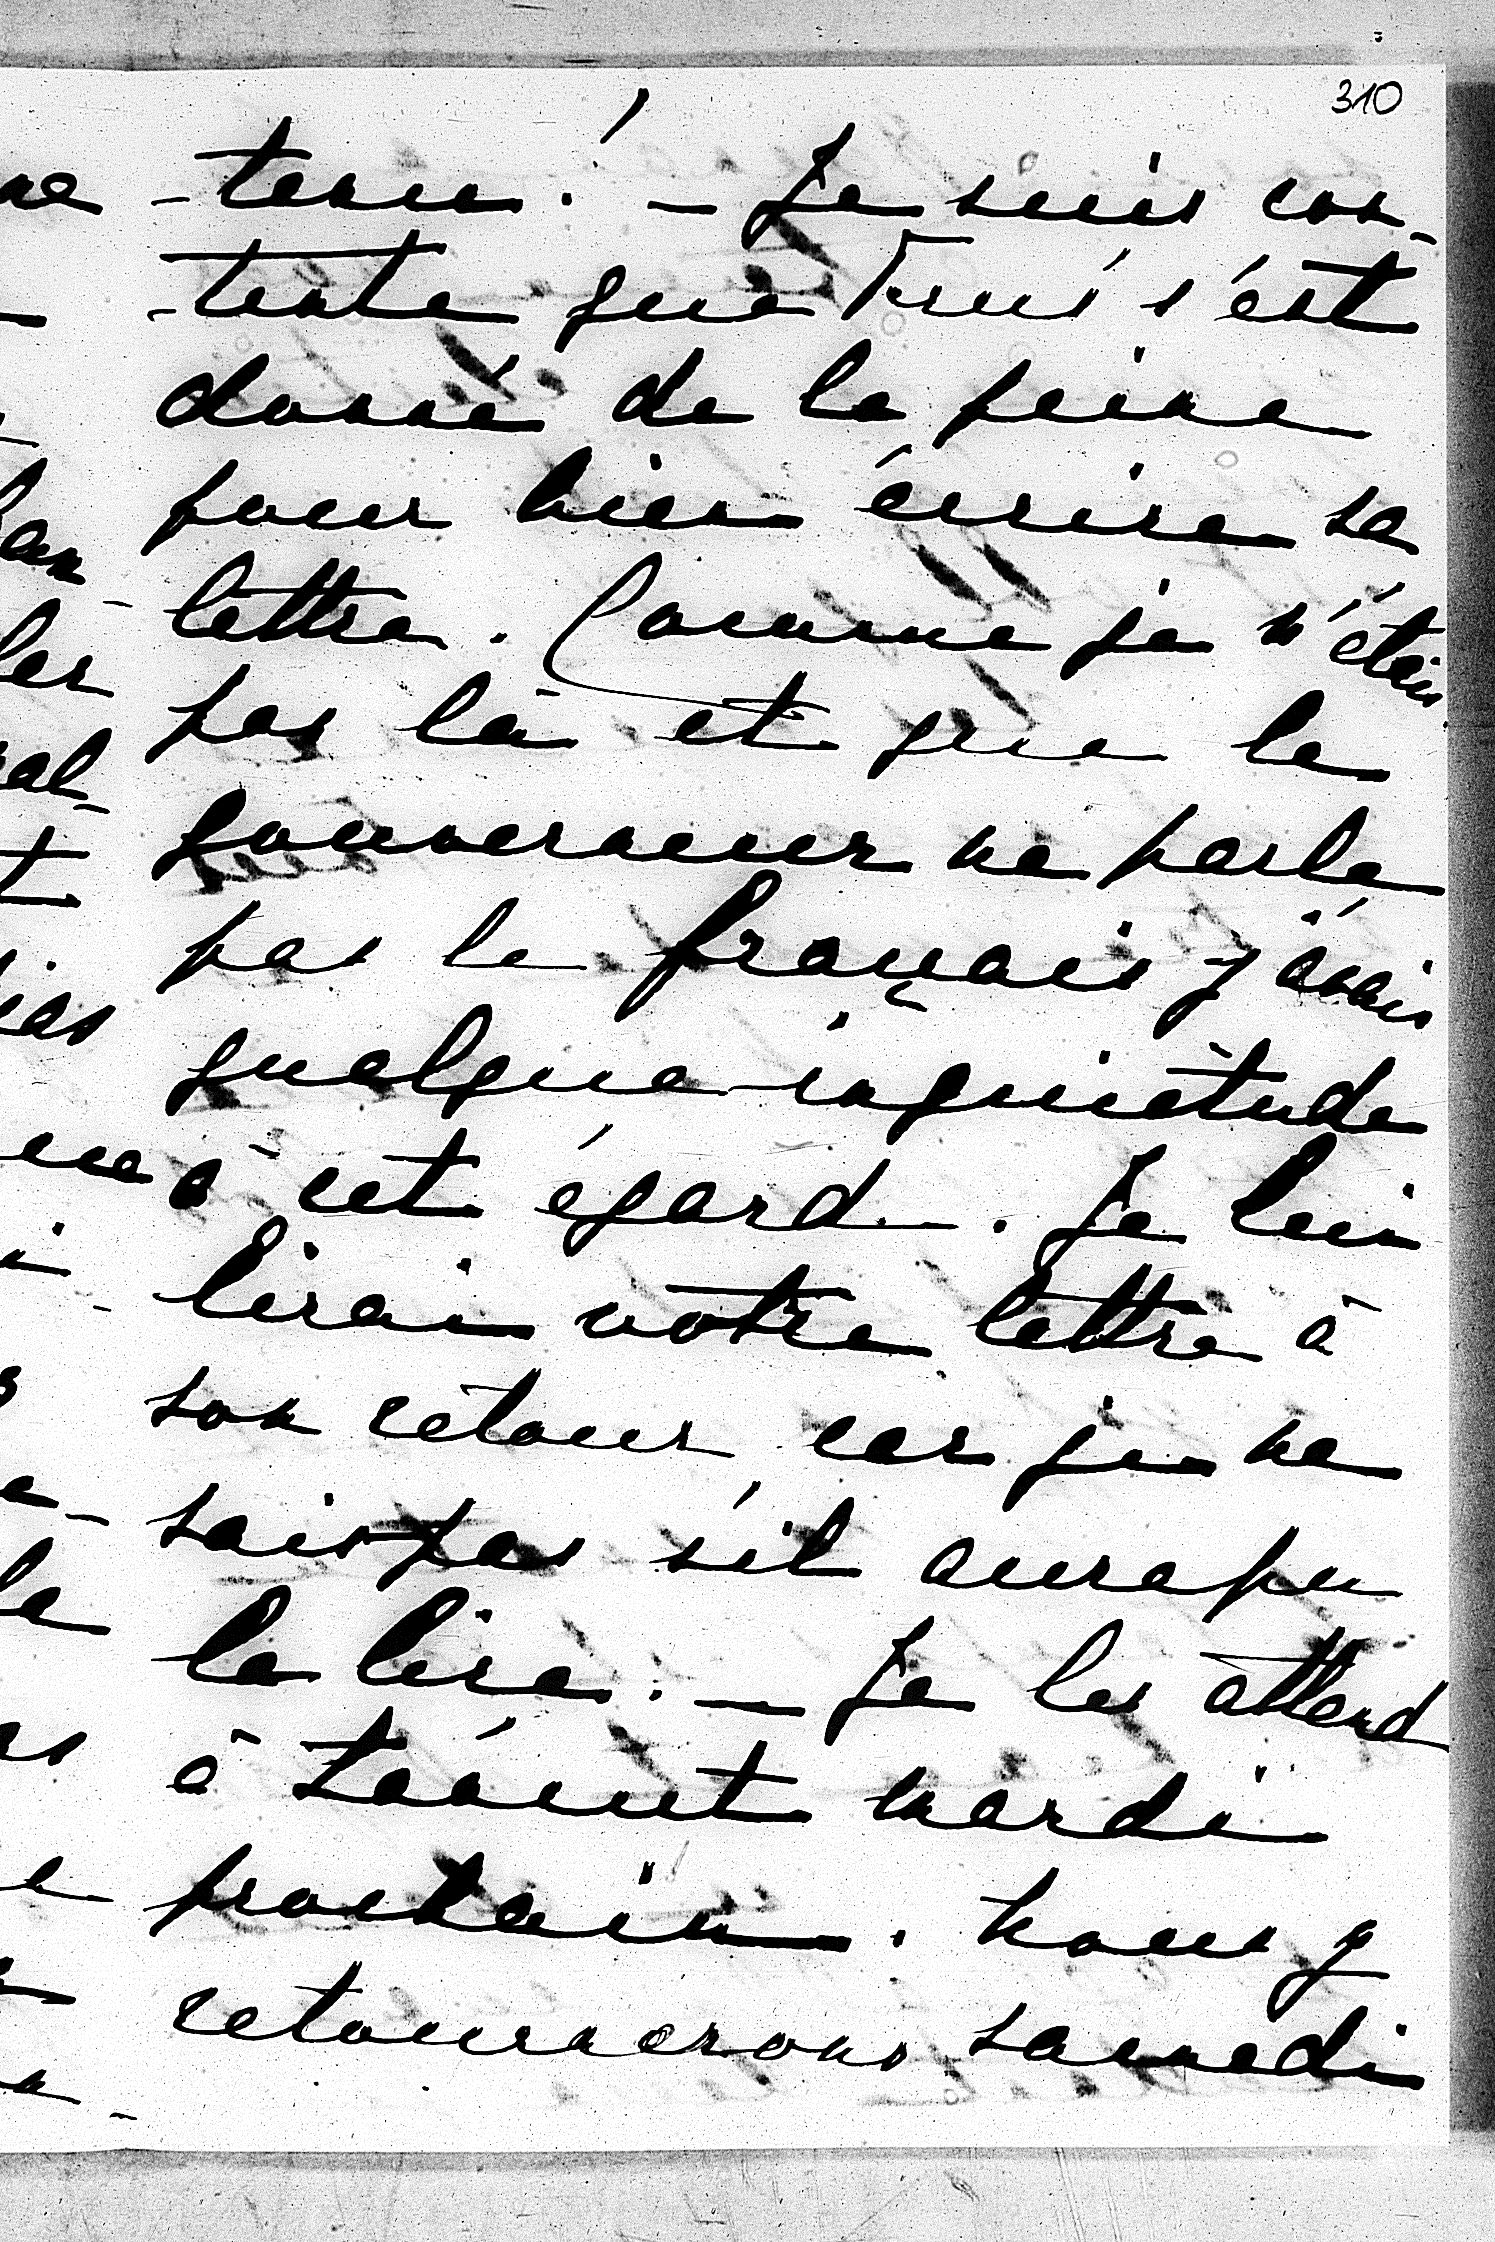 310
-tenu! - Je suis con-
-tente que s'est
donné de la peine
pour bien écrire sa
lettre. Comme je n'étais
pas là et que le
gouverneur ne parle
pas le français j'avais
quelque inquiétude
à cet égard. Je lui
lirai votre lettre à
son retour car je ne
sais pas s'il aura pu
la lire. - Je les attend
à mardi
prochain. Nous y
retournerons samedi